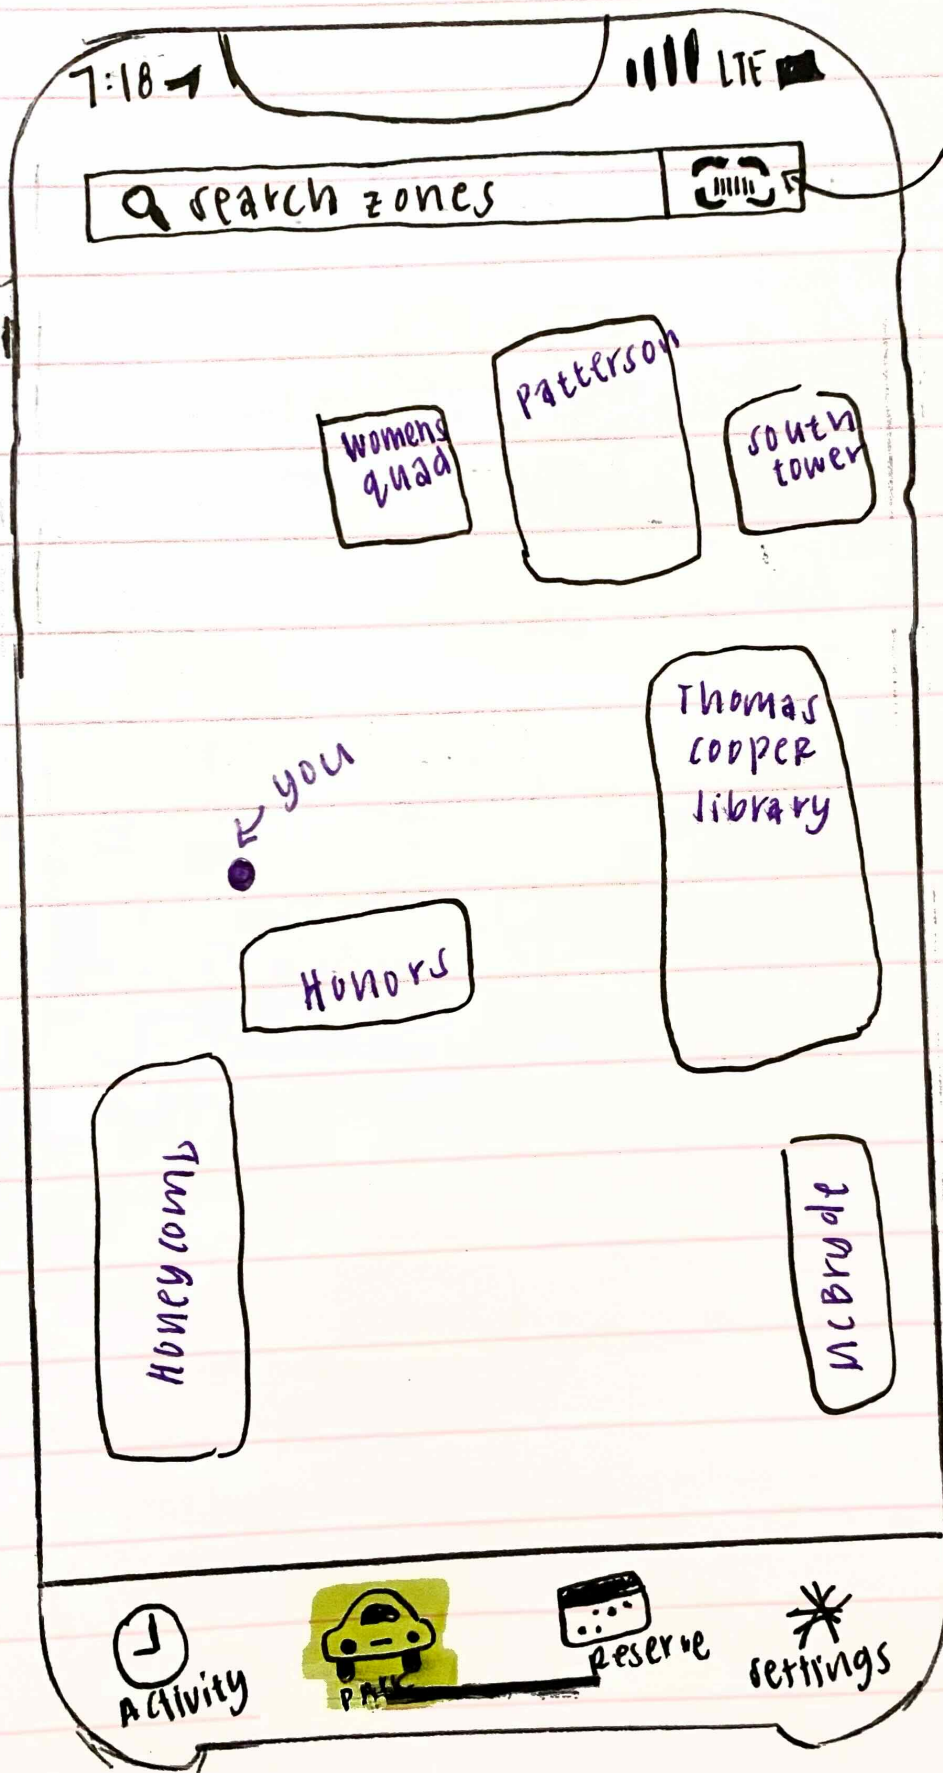 7:18
LTE
search zones
Patterson
womens
quad
south
tower
Thomas
cooper
library
you
Honors
Honeycomb
McBryde
Activity
PARK
Reserve
settings